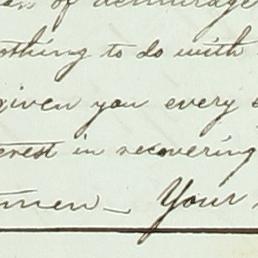 of demurrage
othing to do with
given you every
erest in recovering
tmen — Your